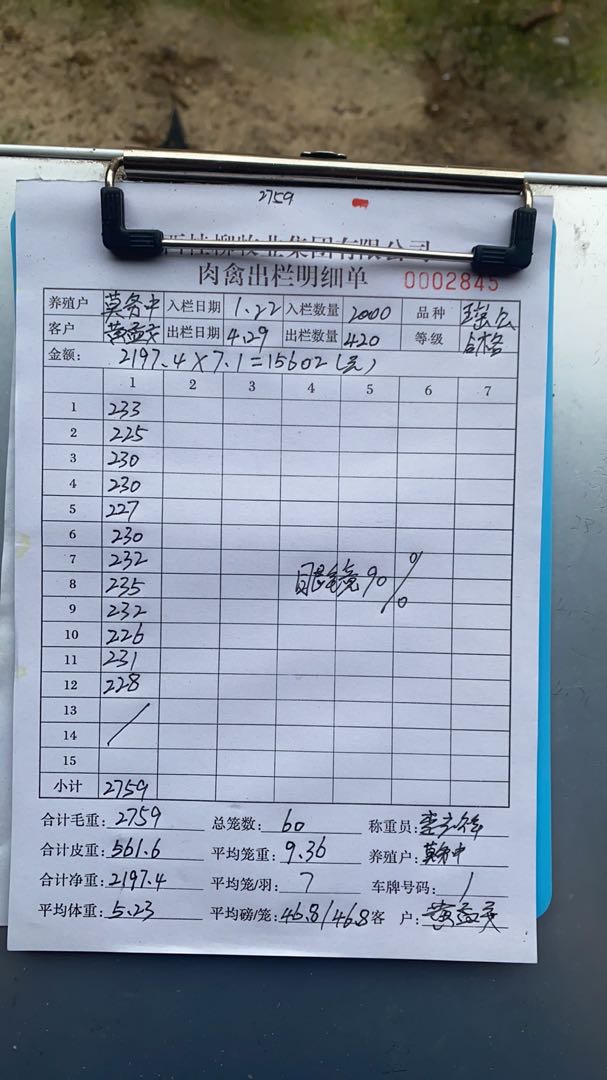 2759
西桂柳牧业集团有限公司
肉禽出栏明细单 0002845
养殖户 莫务中 入栏日期 1.22 入栏数量 2000 品种 瑶公
客户 黄益灵 出栏日期 4.29 出栏数量 420 等级 合格
金额: 2197.4×7.1=15602(元)
1 2 3 4 5 6 7
1 233
2 225
3 230
4 230
5 227
6 230
7 232
8 235
眼镜90%
9 232
10 226
11 231
12 228
13
14 /
15
小计 2759
合计毛重: 2759 总笼数: 60 称重员:
合计皮重: 561.6 平均笼重: 9.36 养殖户: 莫务中
合计净重: 2197.4 平均笼/羽: 7 车牌号码: /
平均体重: 5.23 平均磅/笼: 46.8/46.8 客 户: 黄益灵